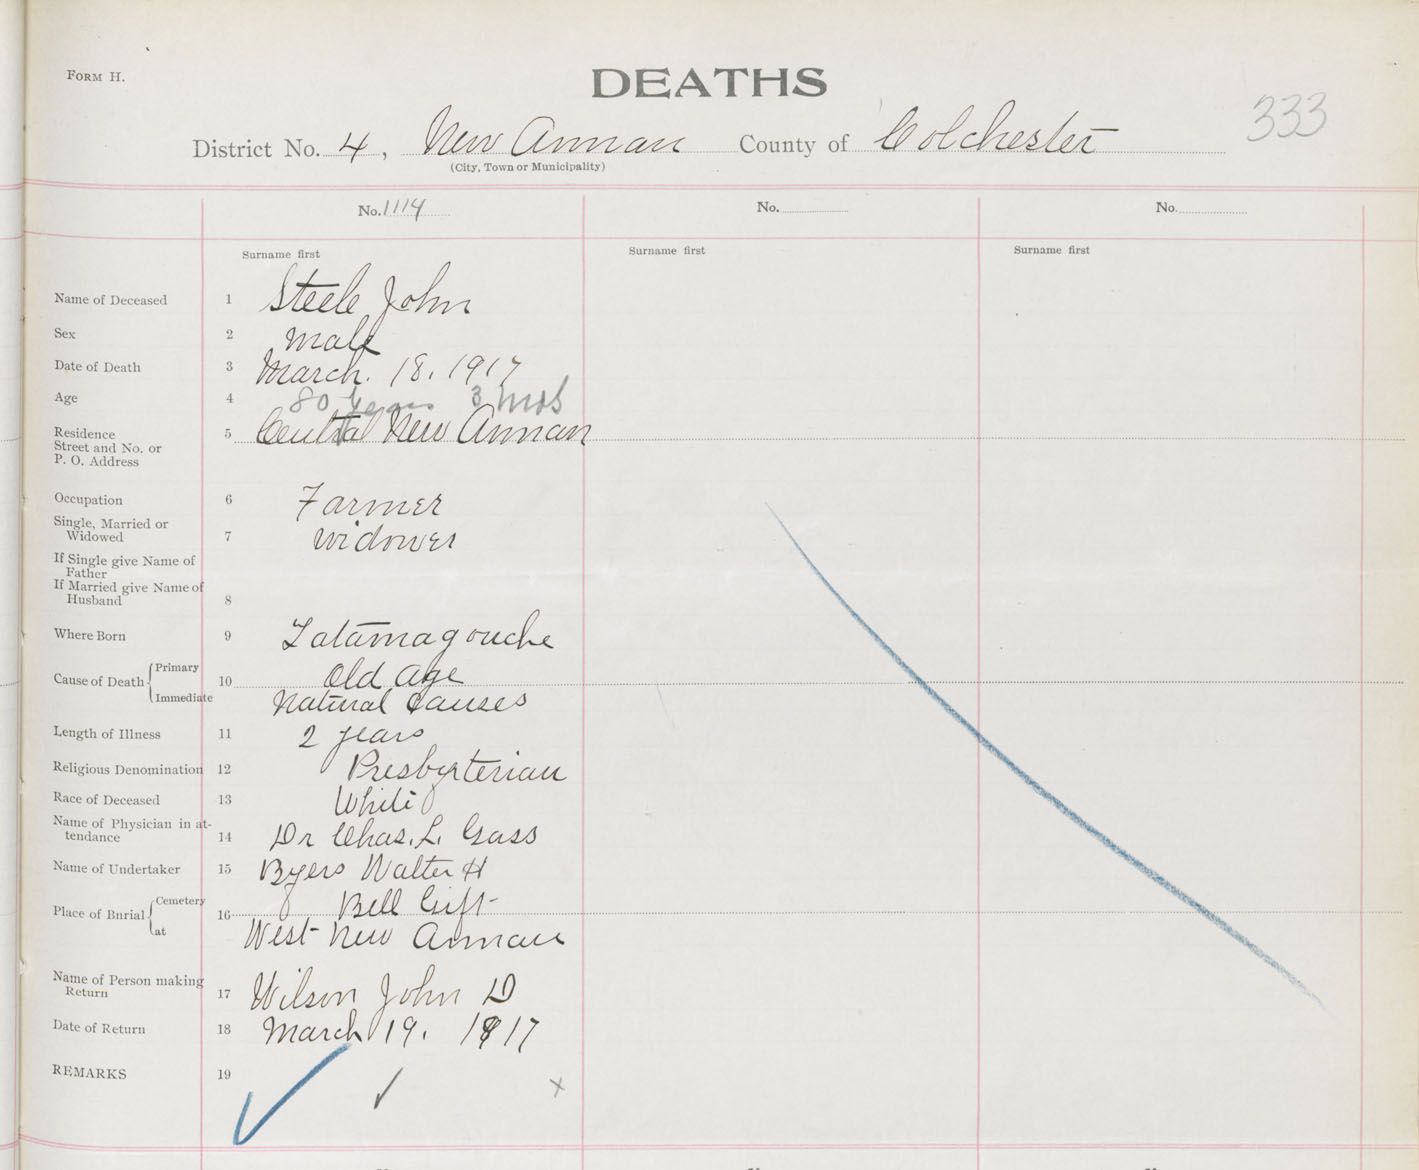 FORM H.
DEATHS
333
District No. 4, New Annan County of Colchester
(City, Town or Municipality)
No. 1114 No. No.
Surname first Surname first Surname first
Name of Deceased 1 Steele John
Sex 2 Male
Date of Death 3 March. 18. 1917
Age 4 80 Years 3 Mos
Residence 5 Central New Annan
Street and No. or
P. O. Address
Occupation 6 Farmer
Single, Married or
Widowed 7 Widower
If Single give Name of
Father
If Married give Name of
Husband 8
Where Born 9 Tatamagouche
Cause of Death Primary 10 Old Age
Immediate Natural Causes
Length of Illness 11 2 years
Religious Denomination 12 Presbyterian
Race of Deceased 13 White
Name of Physician in at-
tendance 14 Dr Chas. L. Gass
Name of Undertaker 15 Byers Walter H
Place of Burial Cemetery 16 Bell Clift
at West New Annan
Name of Person making
Return 17 Wilson John D
Date of Return 18 March 19. 1917
REMARKS 19